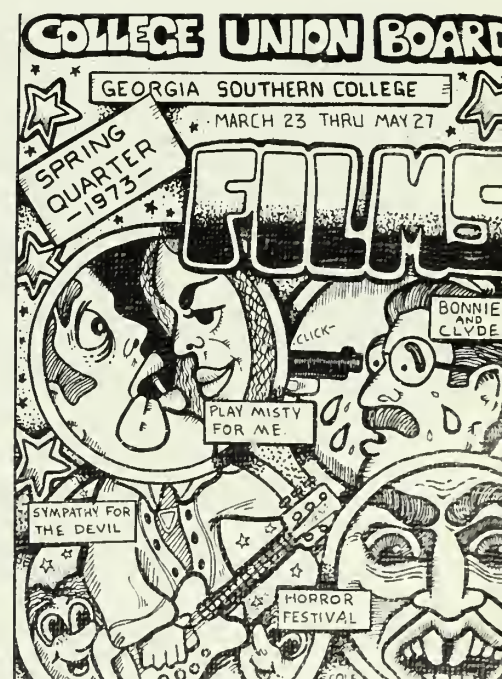 COLLEGE UNION BOARD
GEORGIA SOUTHERN COLLEGE
MARCH 23 THRU MAY 27
SPRING
QUARTER
-1973-
FILMS
BONNIE
AND
CLYDE
CLICK-
PLAY MISTY
FOR ME.
SYMPATHY FOR
THE DEVIL
HORROR
FESTIVAL